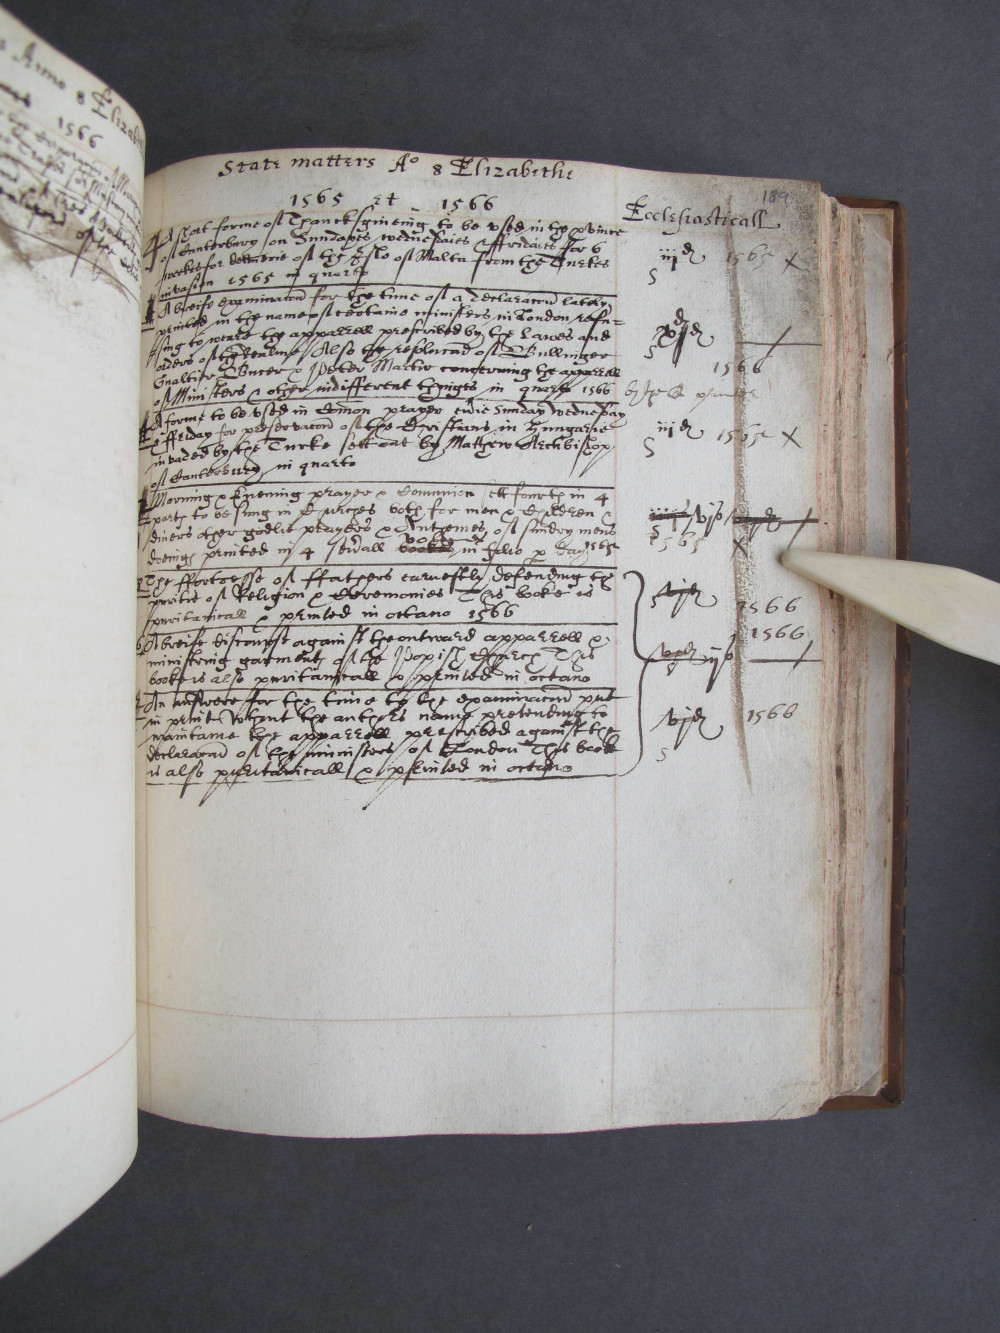 Anno 8 Elizabeth
1566
State matters Ao 8 Elizabethe
189
1565 et 1566
Ecclesiasticall
A short forme of Thancksgiueing to be vsed in the prouince
of Canterbury on Sundayes wednesdaies & ffridaies for 6
weekes for deliuerie of the Isle of Malta from the Turkes
invasion 1565 in quarto
iiijd 1565 X
s
A breife examinacon for the time of a declaracon lately
printed in the name of certaine ministers in London refu=
sing to weare the apparrell prescribed by the Lawes and
orders of the Realme Also the replucacon of Bullinger
Gualtier Bucer & Peter Martir concerning the apparell
of Ministers & other indifferent thinges in quarto 1566
s
1566
A forme to be vsed in Comon prayer euerie Sunday wednesday
& ffriday for preseruacon of the Christians in Hungarie
invaded by the Turke sett out by Mathew Archbishop
of Canterbury in quarto
iiijd 1565 X
s
Morning & Euening prayer & Communion sett fourth in 4
partes to be sung in Churches both for men & Children &
diuers other godlie prayers & Anthemes of sundry mens
doeings printed in 4 seuerall bookes in folio p Day 1565
1565 X
The ffortresse of ffathers earnestly defending the
puritie of Religion & Ceremonies This booke is
puritanicall & printed in octauo 1566
vjd 1566
s
A breife discourse against the outward apparrell &
ministring garmentes of the Popish Church This
booke is also puritanicall & printed in octauo
1566
s
An answere for the time to the examinacon put
in print without the authors name pretending to
maintaine the apparrell prescribed against the
declaracon of the ministers of London This booke
is also puritanicall & printed in octauo
vjd 1566
s